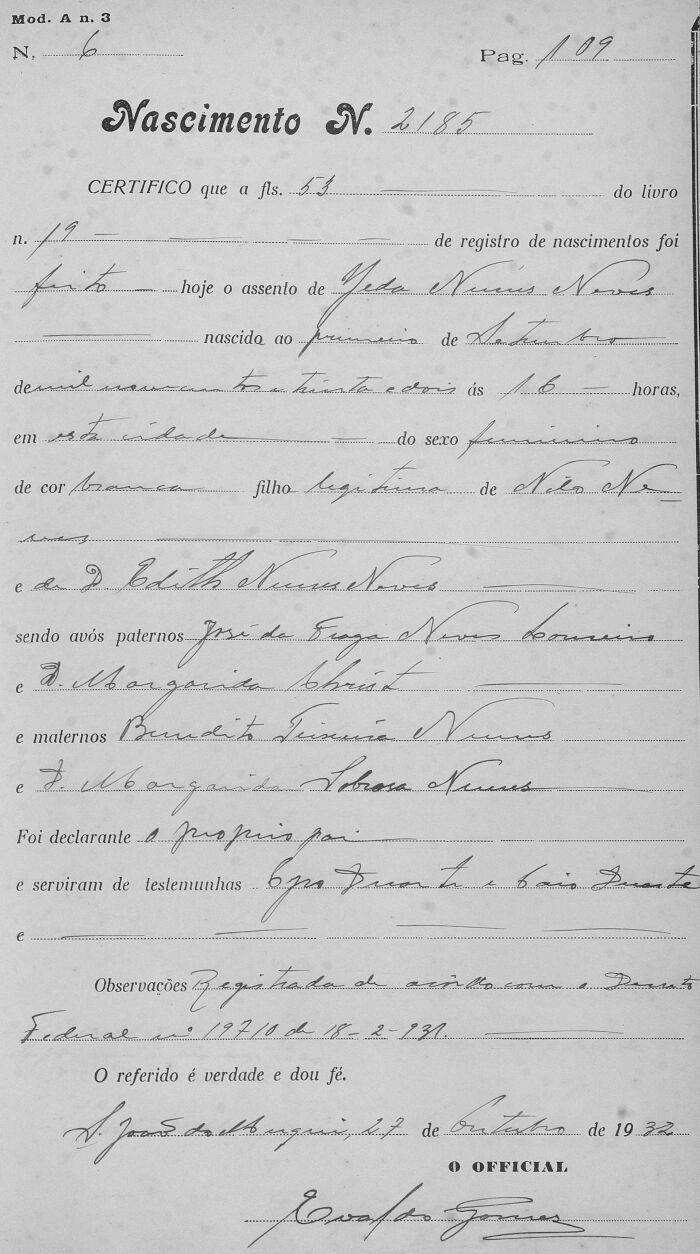 Mod. A n. 3
N. 6 Pag. 109
Nascimento N. 2185
CERTIFICO que a fls. 53 do livro
n. 19 de registro de nascimentos foi
feito hoje o assento de Yeda Nunes Neves
nascido ao primeiro de Setembro
de mil novecentos e trinta e dois ás 16 horas,
em esta cidade do sexo feminino
de cor branca filho legitima de Nilo Ne=
ves
e de D. Edith Nunes Neves
sendo avós paternos José da Fraga Neves Loureiro
e D. Margarida Christ
e maternos Benedito Teixeira Nunes
e D. Margarida Sobrosa Nunes
Foi declarante o proprio pai
e serviram de testemunhas Duarte e Caio Duarte
e
Observações Registrada de acôrdo com o Decreto
Federal nº 19710 de 18-2-931.
O referido é verdade e dou fé.
S. João do Muqui, 27 de Outubro de 1932
O OFFICIAL
Evaldo Gomes